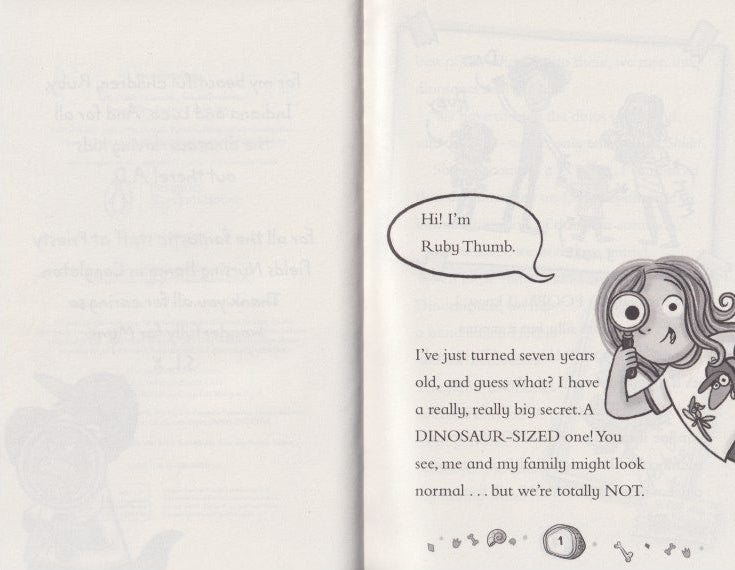 Hi! I'm
Ruby Thumb.
I've just turned seven years
old, and guess what? I have
a really, really big secret. A
DINOSAUR-SIZED one! You
see, me and my family might look
normal . . . but we're totally NOT.
1